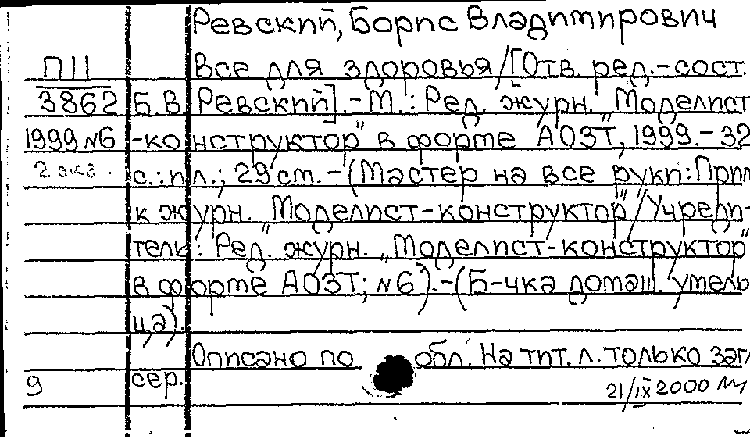 Ревский, Борис Владимирович
П11 Все для здоровья/[Отв. ред.-сост.
3862 Б.В. Ревский].-М.: Ред. журн. "Моделист
1999 №6 -конструктор" в форме АОЗТ, 1999.-32
2 экз. с.: ил.; 29 см.-(Мастер на все руки: Прил.
к журн. "Моделист-конструктор"/Учреди-
тель: Ред. журн. "Моделист-конструктор"
в форме АОЗТ; №6).-(Б-чка домаш. умель-
ца).
Описано по обл. На тит. л. только загл.
9 сер. 21/IX 2000